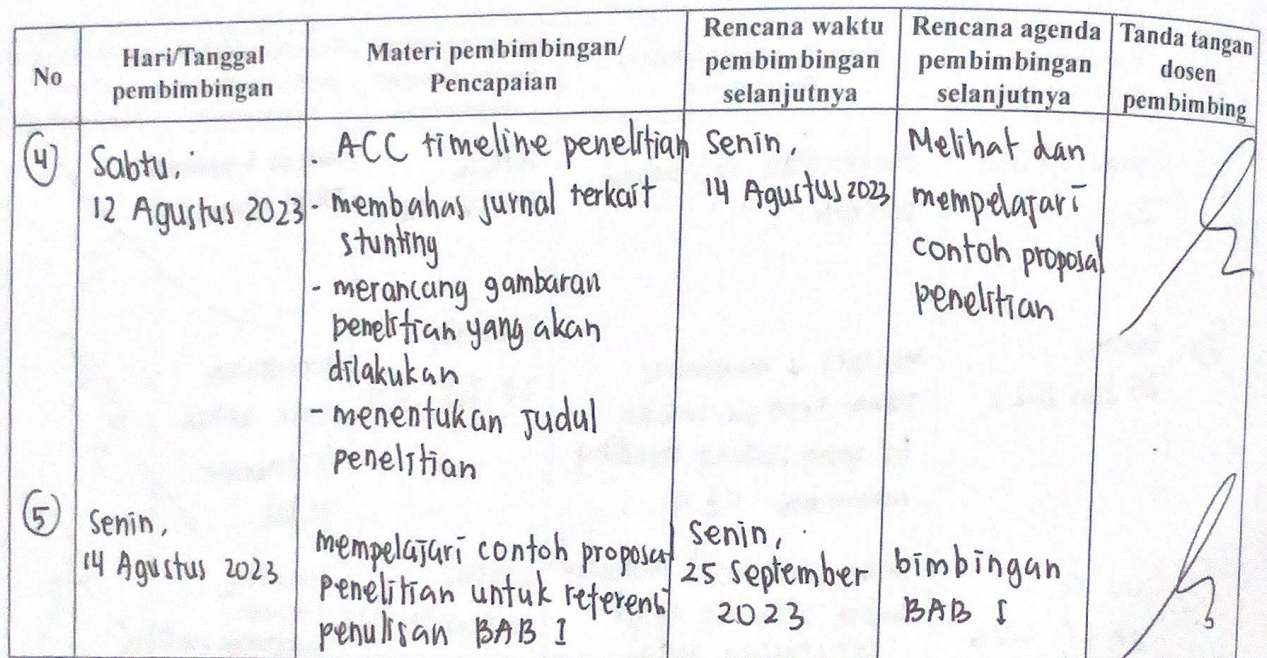 No
Hari/Tanggal
pembimbingan
Materi pembimbingan/
Pencapaian
Rencana waktu
pembimbingan
selanjutnya
Rencana agenda
pembimbingan
selanjutnya
Tanda tangan
dosen
pembimbing
4
Sabtu,
12 Agustus 2023
- ACC timeline penelitian
- membahas jurnal terkait
stunting
- merancang gambaran
penelitian yang akan
dilakukan
- menentukan judul
penelitian
Senin,
14 Agustus 2023
Melihat dan
mempelajari
contoh proposal
penelitian
5
Senin,
14 Agustus 2023
mempelajari contoh proposal
penelitian untuk referensi
penulisan BAB I
Senin,
25 September
2023
bimbingan
BAB I